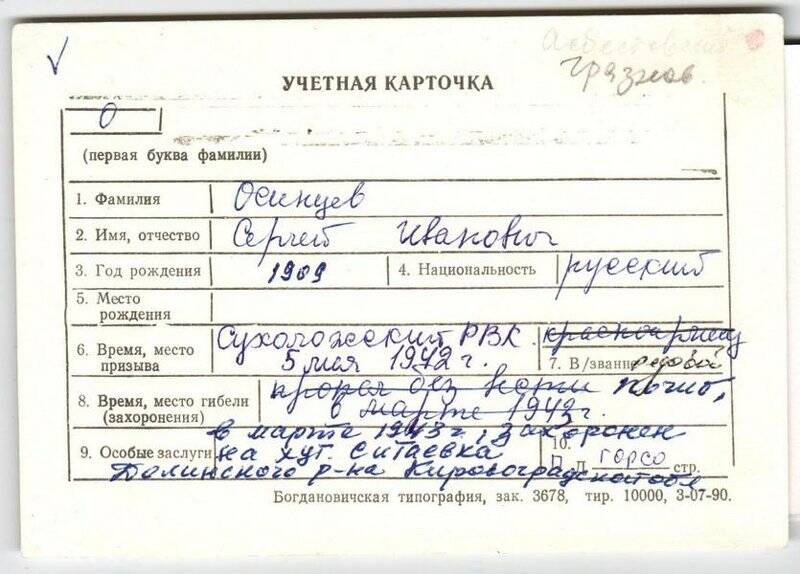 Асбестовский
Грязнов.
УЧЕТНАЯ КАРТОЧКА
О
(первая буква фамилии)
1. Фамилия Осинцев
2. Имя, отчество Сергей Иванович
3. Год рождения 1909 4. Национальность русский
5. Место рождения
6. Время, место призыва Сухоложский РВК 5 мая 1942 г.
7. В/звание красноармеец рядовой
8. Время, место гибели (захоронения) пропал без вести погиб,
в марте 1943г.
в марте 1943г, захоронен
9. Особые заслуги на хут. Ситаевка
10. П Д ГОРСО стр.
Долинского р-на Кировоградской обл
Богдановичская типография, зак. 3678, тир. 10000, 3-07-90.